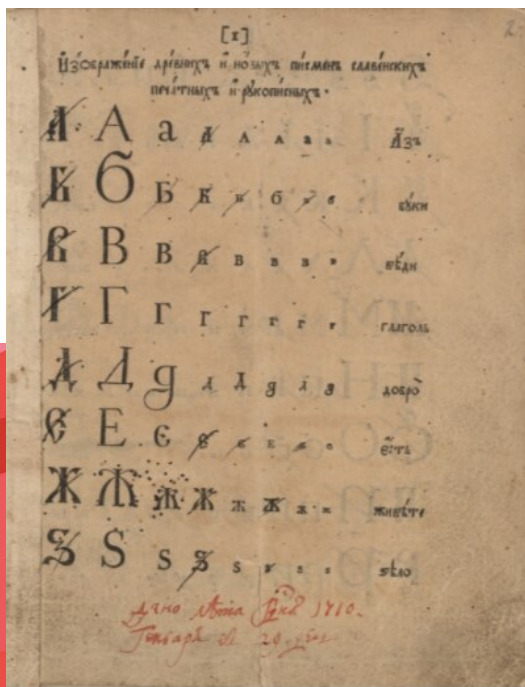 [1]
Изображенїе древнихъ и новыхъ писменъ славенскихъ
печатныхъ и рукописныхъ.
А А а А А А а а Азъ
Б Б Б Б Б б Б в буки
В В В В В В В В вѣди
Г Г Г Г Г Г Г Г глаголь
Д Д д Д Д д д д добро
Є Е Є Є Є Є Є Є есть
Ж Ж Ж Ж Ж Ж Ж Ж живѣте
Ѕ Ѕ Ѕ Ѕ Ѕ Ѕ Ѕ Ѕ ѕѣло
1710.
Генваря 29